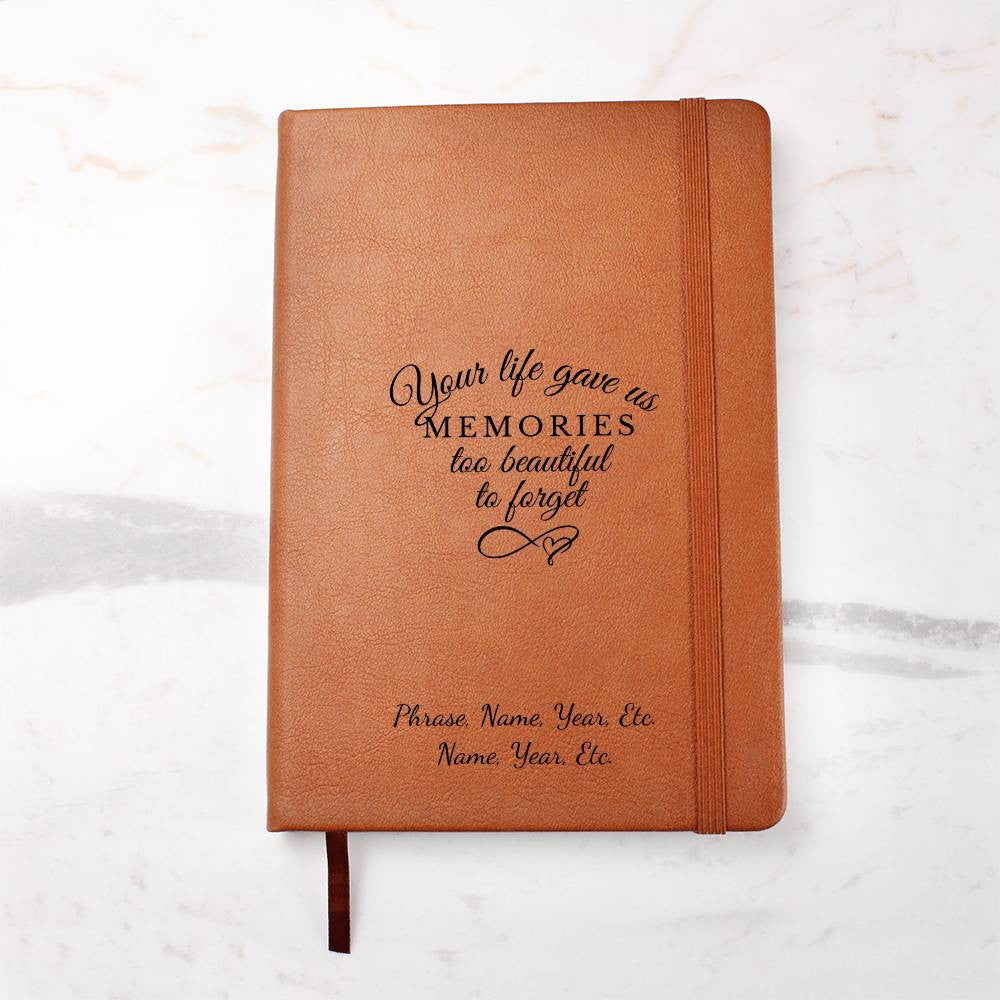 Your life gave us
MEMORIES
too beautiful
to forget
Phrase, Name, Year, Etc.
Name, Year, Etc.